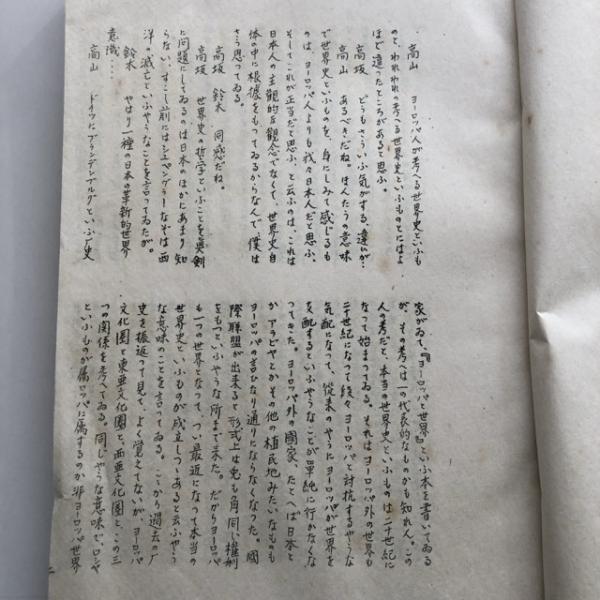 高山　ヨーロッパ人が考へる世界史といふも
のと、われわれの考へる世界史といふものとにはよ
ほど違ったところがあると思ふ。
高坂　どうもさういふ気がする、違ひが…
高山　あるべきだね。ほんたうの意味
で世界史といふものを、身にしみて感じるも
のは、ヨーロッパ人よりも我々日本人だと思ふ、
そしてこれが正当だと思ふ、と云ふのは、これは
日本人の主観的な観念でなくて、世界史自
体の中に根據をもってゐるからなんで、僕は
さう思ってゐる。
高坂　鈴木　同感だね。
高坂　世界史の哲学といふことを真剣
に問題にしてゐるのは日本のほかにあまり知
らない、すこし前にはシュペングラーなぞは西
洋の滅亡といふやうなことを言ってゐたが。
鈴木　やはり一種の日本の革新的世界
意識…
高山　ドイツにブランデンブルグといふ歴史
家がゐて、『ヨーロッパと世界』といふ本を書いてゐる
が、その考へは一つの代表的なものかも知れん。この
人の考だと、本当の世界史といふものは二十世紀に
なって始まってゐる。それはヨーロッパ外の世界も
二十世紀になって段々ヨーロッパと対抗するやうな
気配になって、従来のやうにヨーロッパが世界を
支配するといふやうなことが単純に行かなくな
ってきた。ヨーロッパ外の國家、たとへば日本と
か、アラビヤとかその他の植民地みたいなものも
ヨーロッパの言ひなり通りにならなくなった。國
際聯盟が出来ると形式上は兎も角同じ権利
をもつといふやうな所まで来た。だからヨーロッパ
も一つの世界となって、つい最近になって本当の
世界史といふものが成立しつゝあると云ふやう
な意味のことを言ってゐる。こゝから過去の歴
史を振返って見て、よく覚えてないが、ヨーロッパ
文化圏と東亜文化圏と、西亜文化圏と、この三
つの関係を考へてゐる。同じやうな意味で、ロシヤ
といふものが属ヨーロッパに属するのか非ヨーロッパ世界
二